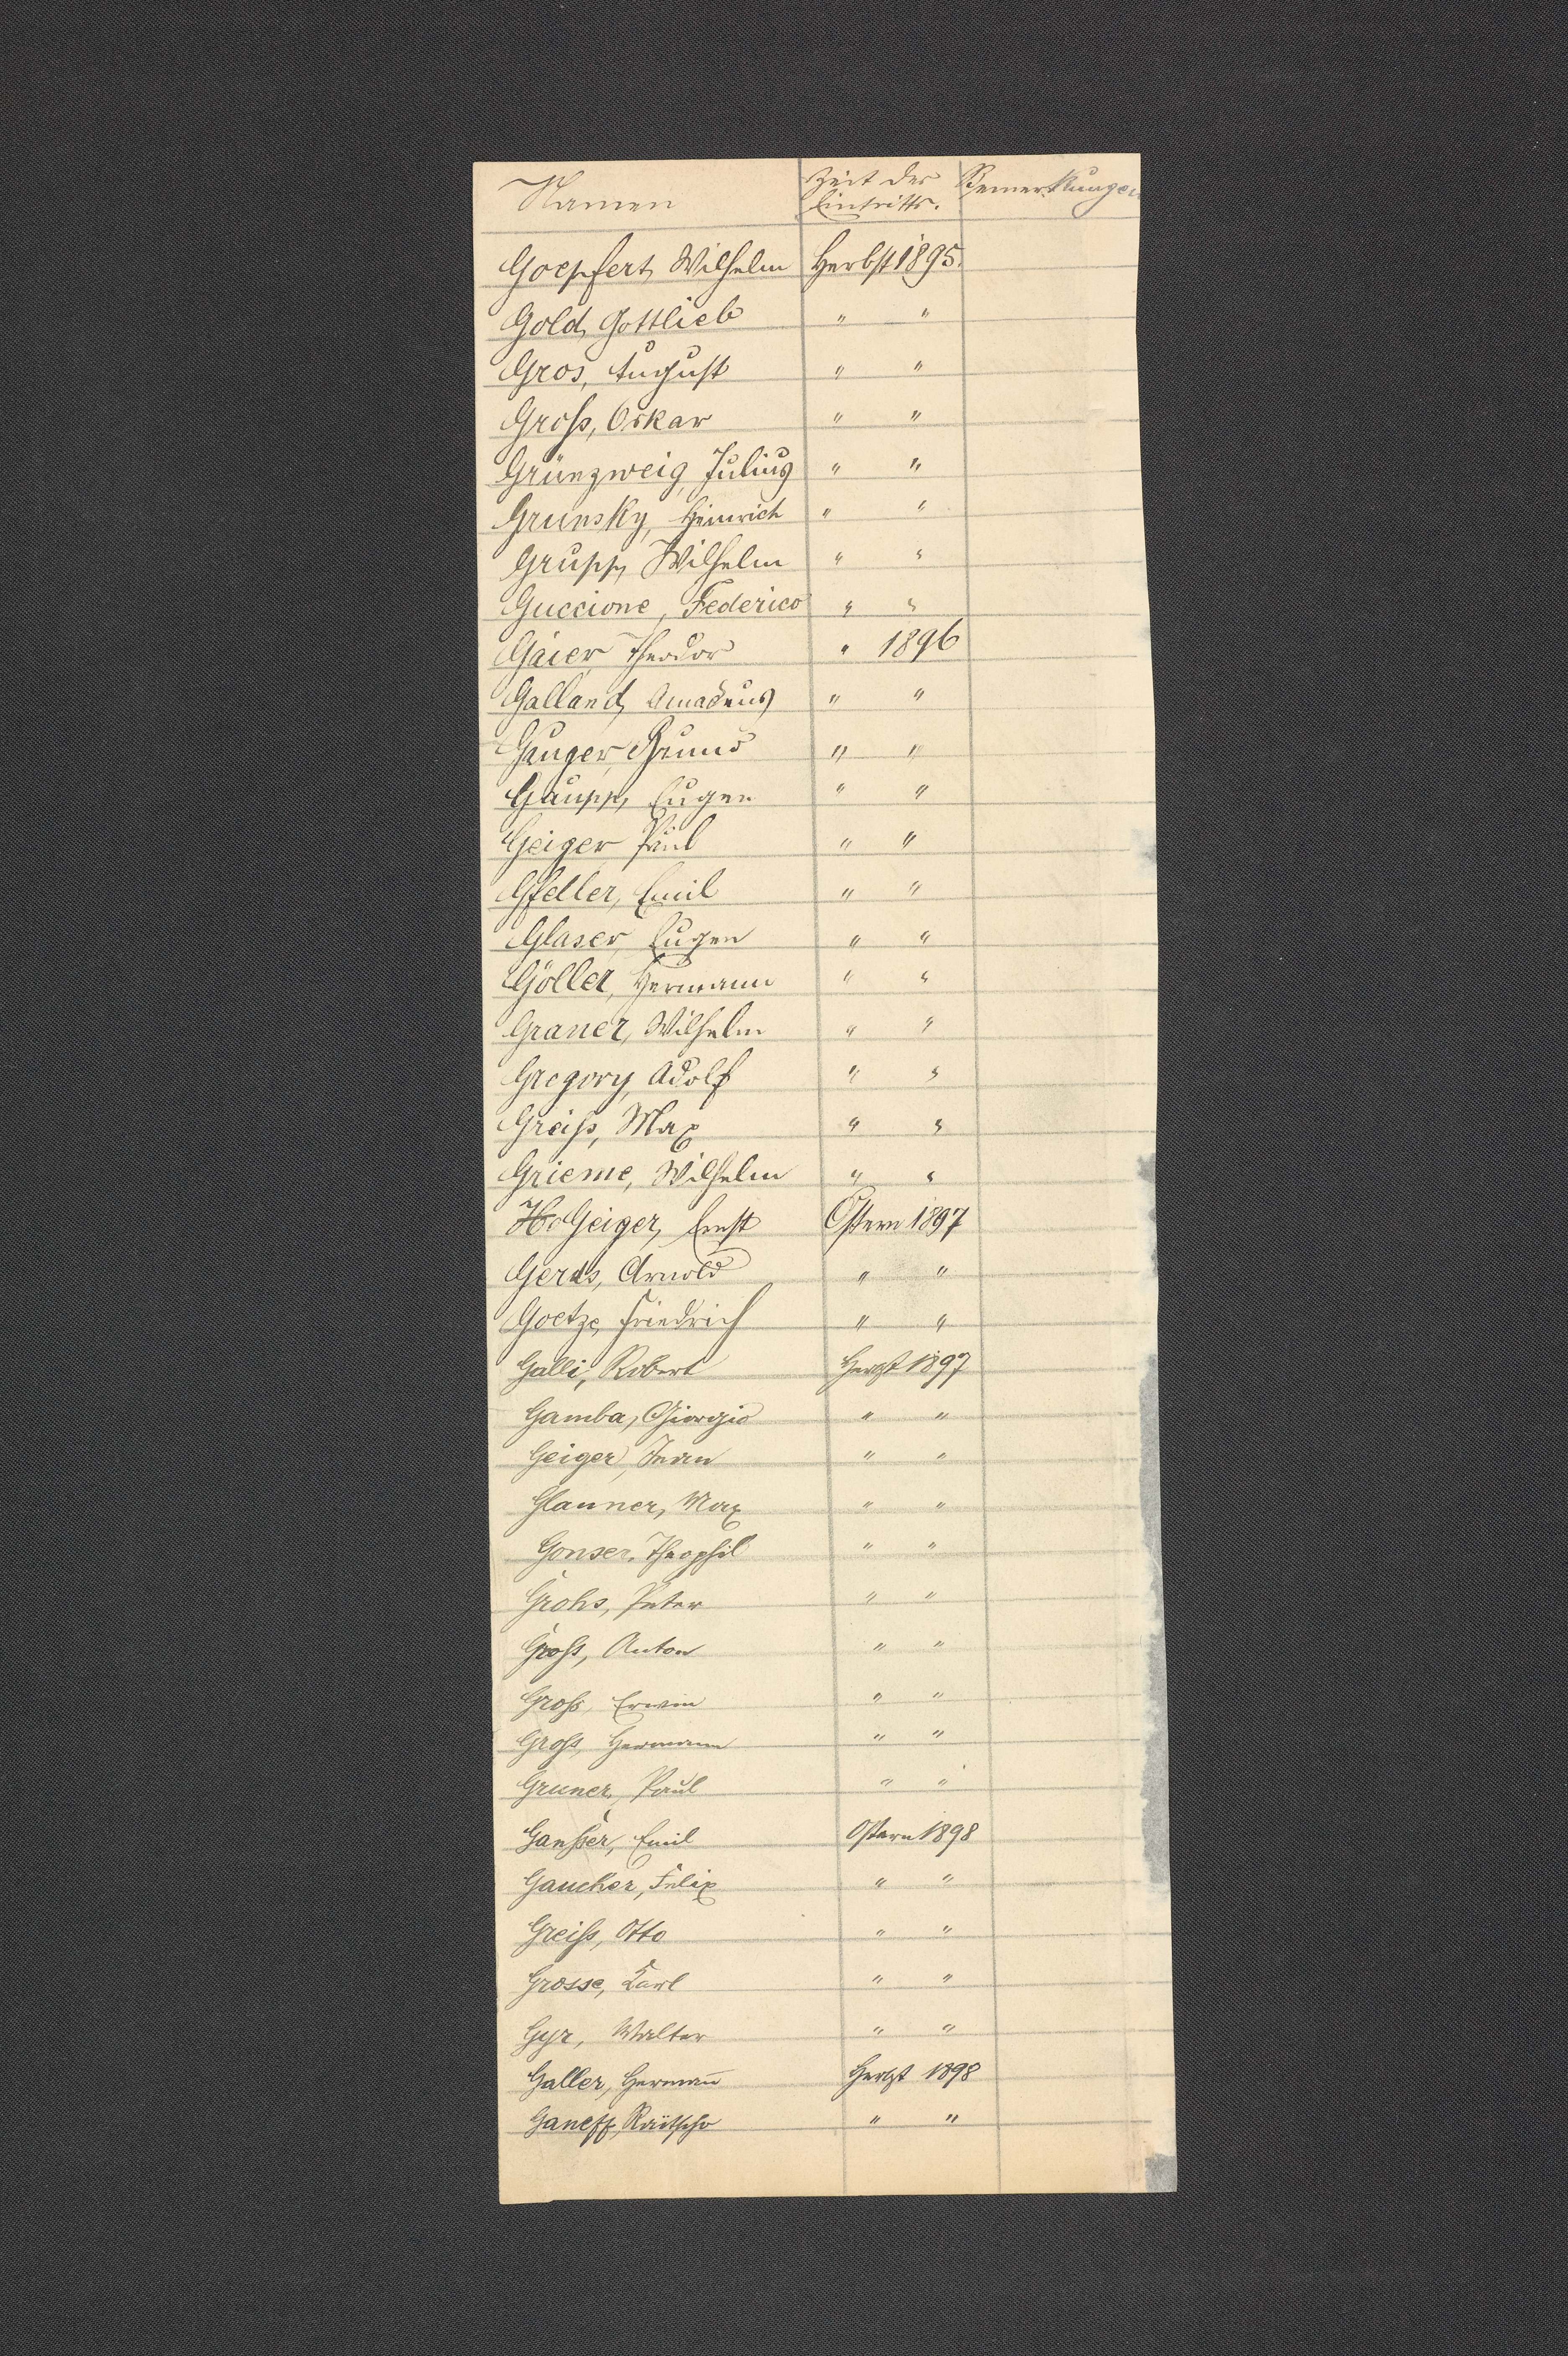 Namen Zeit des Eintritts. Bemerkungen
Goepfert, Wilhelm Herbst 1895.
Gold, Gottlieb " "
Gros, August " "
Groß, Oskar " "
Grünzweig, Julius " "
Grunsky, Heinrich " "
Grupp, Wilhelm " "
Guccione, Federico " "
Gaier, Theodor " 1896
Galland, Amadeus " "
Gauger, Bruno " "
Gaupp, Eugen " "
Geiger, Paul " "
Gfeller, Emil " "
Glaser, Eugen " "
Göller, Hermann " "
Graner, Wilhelm " "
Gregory, Adolf " "
Greiß, Max " "
Grieme, Wilhelm " "
Geiger, Ernst Ostern 1897
Gerds, Arnold " "
Goetze, Friedrich " "
Galli, Robert Herbst 1897
Gamba, Giorgio " "
Geiger, Iwan " "
Glauner, Max " "
Gonser, Theophil " "
Grohs, Peter " "
Groß, Anton " "
Groß, Erwin " "
Groß, Hermann " "
Gruner, Paul " "
Ganßer, Emil Ostern 1898
Gaucher, Felix " "
Greiß, Otto " "
Grosse, Karl " "
Gyr, Walter " "
Galler, Hermann̄ Herbst 1898
Ganeff, Raitscho " "